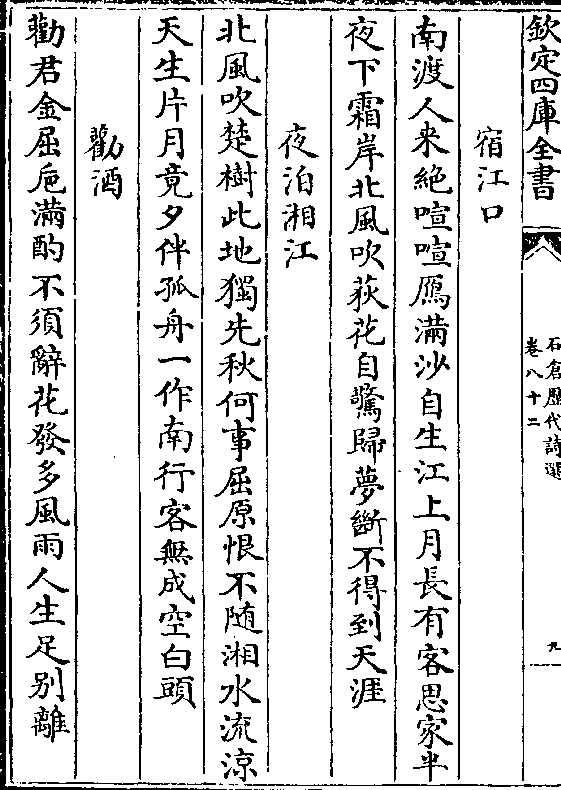 欽定四庫全書
石倉歷代詩選
卷八十二
九
宿江口
南渡人来絶喧喧鴈滿沙自生江上月長有客思家半
夜下霜岸北風吹荻花自驚歸夢斷不得到天涯
夜泊湘江
北風吹楚樹此地獨先秋何事屈原恨不随湘水流涼
天生片月竟夕伴孤舟一作南行客無成空白頭
勸酒
勸君金屈卮滿酌不須辭花發多風雨人生足别離